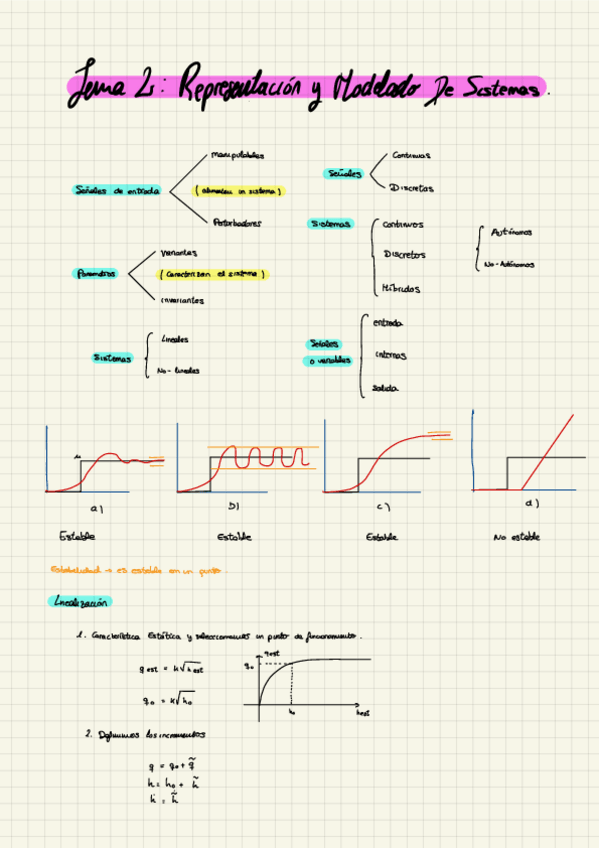 Tema 2: Representación y Modelado De Sistemas.
Señales de entrada
Manipulables
(alimentan un sistema)
Perturbadores
Señales
Continuas
Discretas
Sistemas
Continuos
Discretos
Híbridos
Autónomos
No-Autónomos
Parámetros
Variantes
(Caracterizan el sistema)
invariantes
Sistemas
Lineales
No-lineales
Señales o variables
entrada
internas
salida
a)
b)
c)
d)
Estable
Estable
Estable
No estable
Estabilidad → es estable en un punto.
Linealización
1. Característica Estática y seleccionamos un punto de funcionamiento.
q est = K√h est
q₀ = K√h₀
q est
q₀
h₀
h est
2. Definimos los incrementos
q = q₀ + q̃
h = h₀ + h̃
ḣ = h̃